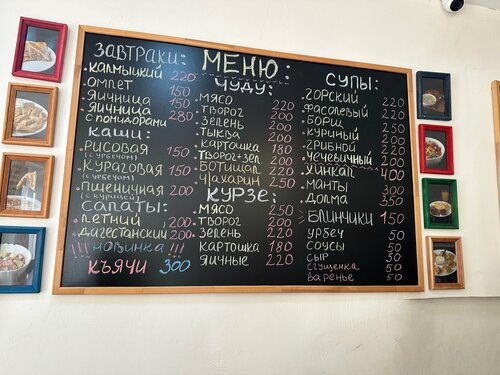 МЕНЮ:
ЗАВТРАКИ:
КАЛМЫЦКИЙ 220
ОМЛЕТ 150
ЯИЧНИЦА 150
ЯИЧНИЦА 280
С ПОМИДОРАМИ
КАШИ:
РИСОВАЯ 150
(С УРБЕЧОМ)
КУРАГОВАЯ 150
(С УРБЕЧОМ)
ПШЕНИЧНАЯ 200
САЛАТЫ:
ЛЕТНИЙ 200
ДАГЕСТАНСКИЙ 200
!!! НОВИНКА !!!
КЪЯЧИ 300
ЧУДУ:
МЯСО 220
ТВОРОГ 200
ЗЕЛЕНЬ 200
ТЫКВА 200
КАРТОШКА 180
ТВОРОГ+ЗЕЛ. 200
БОТИШАЛ 220
ЦIАХАРИН 250
КУРЗЕ:
МЯСО 250
ТВОРОГ 200
ЗЕЛЕНЬ 200
КАРТОШКА 180
ЯИЧНЫЕ 220
СУПЫ:
ГОРСКИЙ 220
ФАСОЛЕВЫЙ 220
БОРЩ 250
КУРИНЫЙ 200
ГРИБНОЙ 220
ЧЕЧЕВИЧНЫЙ 200
ХИНКАЛ 400
МАНТЫ 300
ДОЛМА 350
БЛИНЧИКИ 150
УРБЕЧ 50
СОУСЫ 50
СЫР 50
СГУЩЕНКА 50
ВАРЕНЬЕ 50